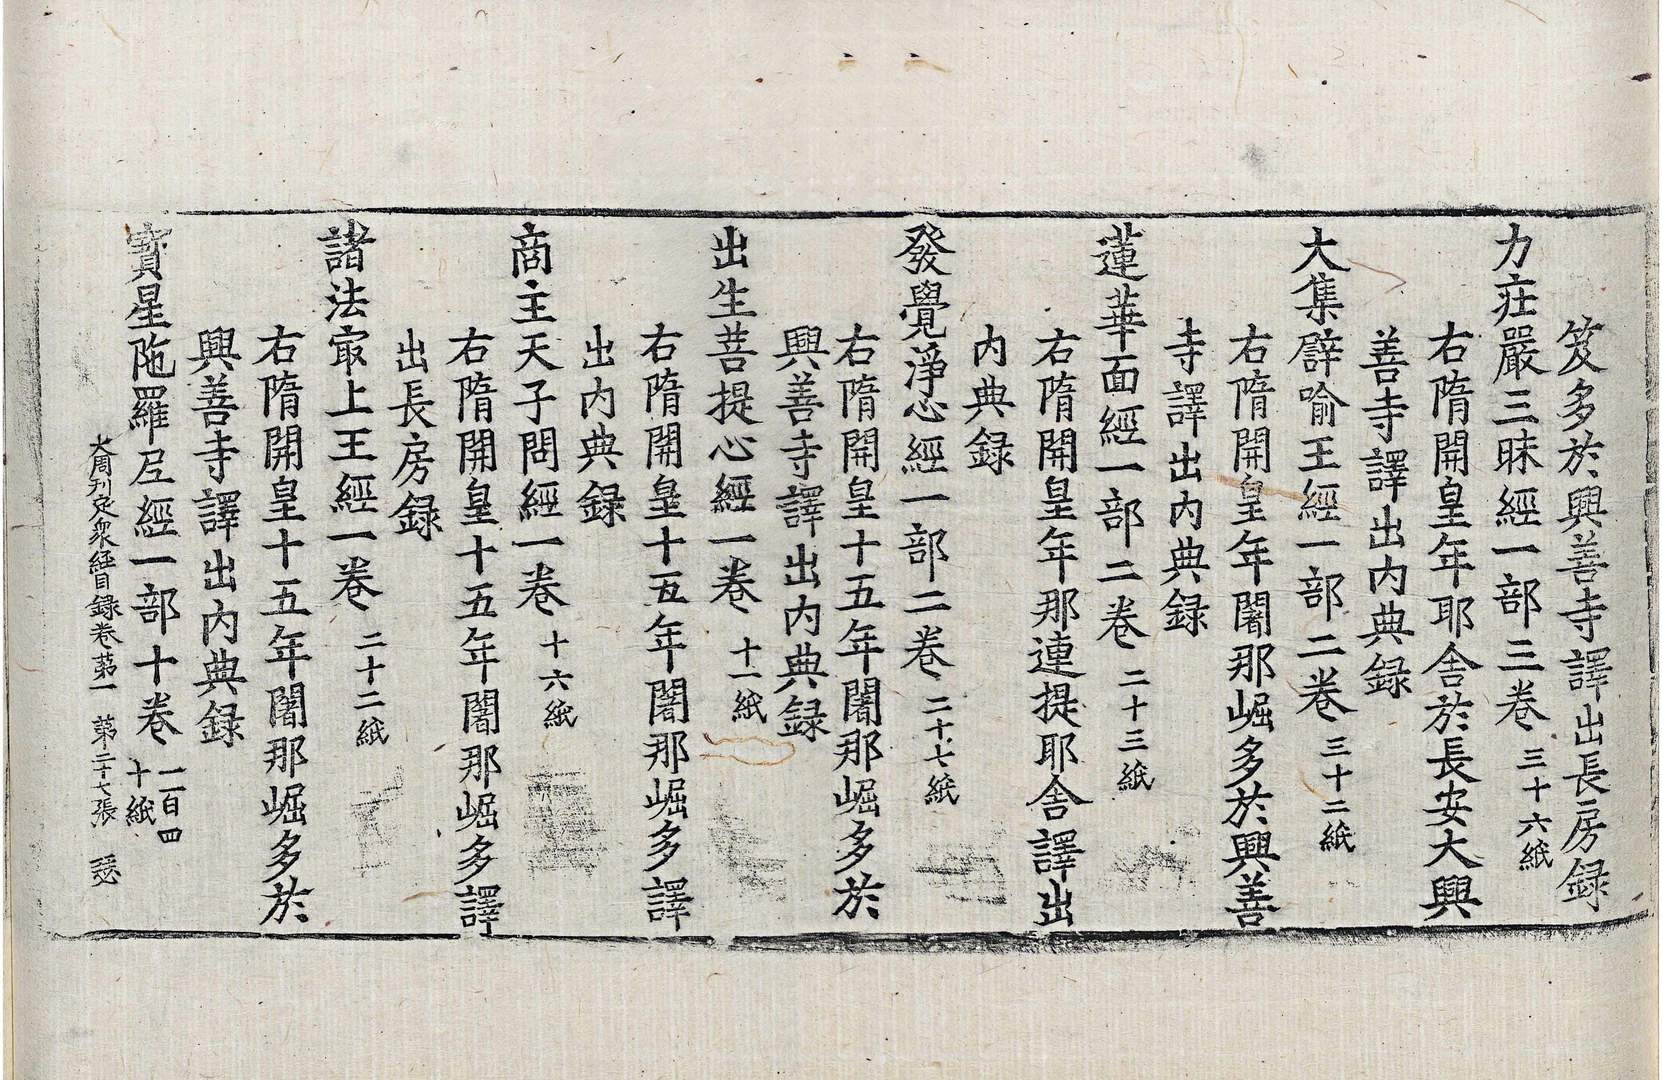 笈多於興善寺譯出長房録
力莊嚴三昧經一部三卷 三十六紙
右隋開皇年耶舍於長安大興
善寺譯出内典録
大集譬喻王經一部二卷 三十二紙
右隋開皇年闍那崛多於興善
寺譯出内典録
蓮華面經一部二卷 二十三紙
右隋開皇年那連提耶舍譯出
内典録
發覺淨心經一部二卷 二十七紙
右隋開皇十五年闍那崛多於
興善寺譯出内典録
出生菩提心經一卷 十一紙
右隋開皇十五年闍那崛多譯
出内典録
商主天子問經一卷 十六紙
右隋開皇十五年闍那崛多譯
出長房録
諸法㝡上王經一卷 二十二紙
右隋開皇十五年闍那崛多於
興善寺譯出内典録
寶星陁羅尼經一部十卷 一百四十紙
大周刊定衆經目録卷第一 第二十七張 瑟